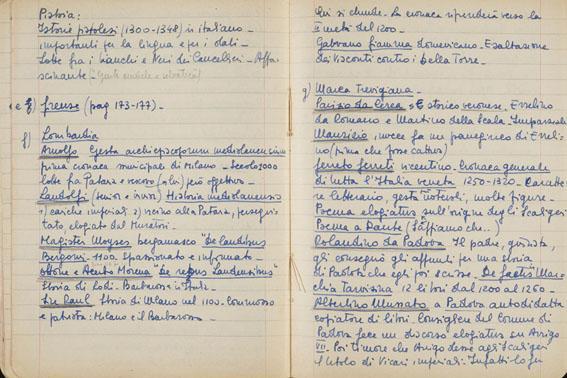 Pistoia:
Istorie pistolesi (1300-1348) in italiano_
importanti per la lingua e per i dati_
Lotte fra i bianchi e Neri dei Cancellieri_ Affa-
scinante
e firenze (pag 173-177)_
f) Lombardia
Arnolfo_ Gesta archiepiscoporum mediolanensium
prima cronaca municipale di Milano_ Secolo 1000
lotte fra Pataria e vescovo però oggettivo_
Landolfi (senior e iunior) Historia mediolanensis
1) cariche imperiali 2) vicino alla Pataria, persegui-
tato, elogiato dal Muratori_
Magister Moyses bergamasco "De laudibus
Bergomi_ 1100. Appassionato e informato_
Ottone e Acerbo Morena "De rebus Laudensibus"
Storia di Lodi_ Barbarossa
Sire Raul_ Storia di Milano nel 1100_ Commosso
e patriota: Milano e il Barbarossa_
Qui si chiude_ La cronaca riprenderà verso la
II metà del 1200_
Galvano fiamma domenicano_ Esaltazione
dei Visconti contro i della Torre_
g) Marca Trevigiana_
Parisio da Cerea_ È storico veronese. Ezzelino
da Romano e Martino della Scala. Imparziale
Maurisio, invece fa un panegirico di Ezzeli-
no (prima che fosse cattivo)
ferreto ferreti vicentino_ Cronaca generale
di tutta l'Italia veneta 1250-1320_ Caratte-
re letterario, gesta notevoli, molte figure_
Poema elogiativo sull'origine degli Scaligeri
Poema a Dante (Sappiamo che..)
Rolandino da Padova Il padre, giurista,
gli consegnò gli appunti per una storia
di Padova che egli poi scrisse_ De factis Mar-
chia Tarvisina 12 libri dal 1200 al 1260_
Albertino Mussato_ a Padova autodidatta
copiatore di libri. Consigliere del Comune di
Padova fece un discorso elogiativo su Arrigo
VII. Poi timore che Arrigo desse agli Scaligeri
il titolo di Vicari imperiali. Infatti lo fa